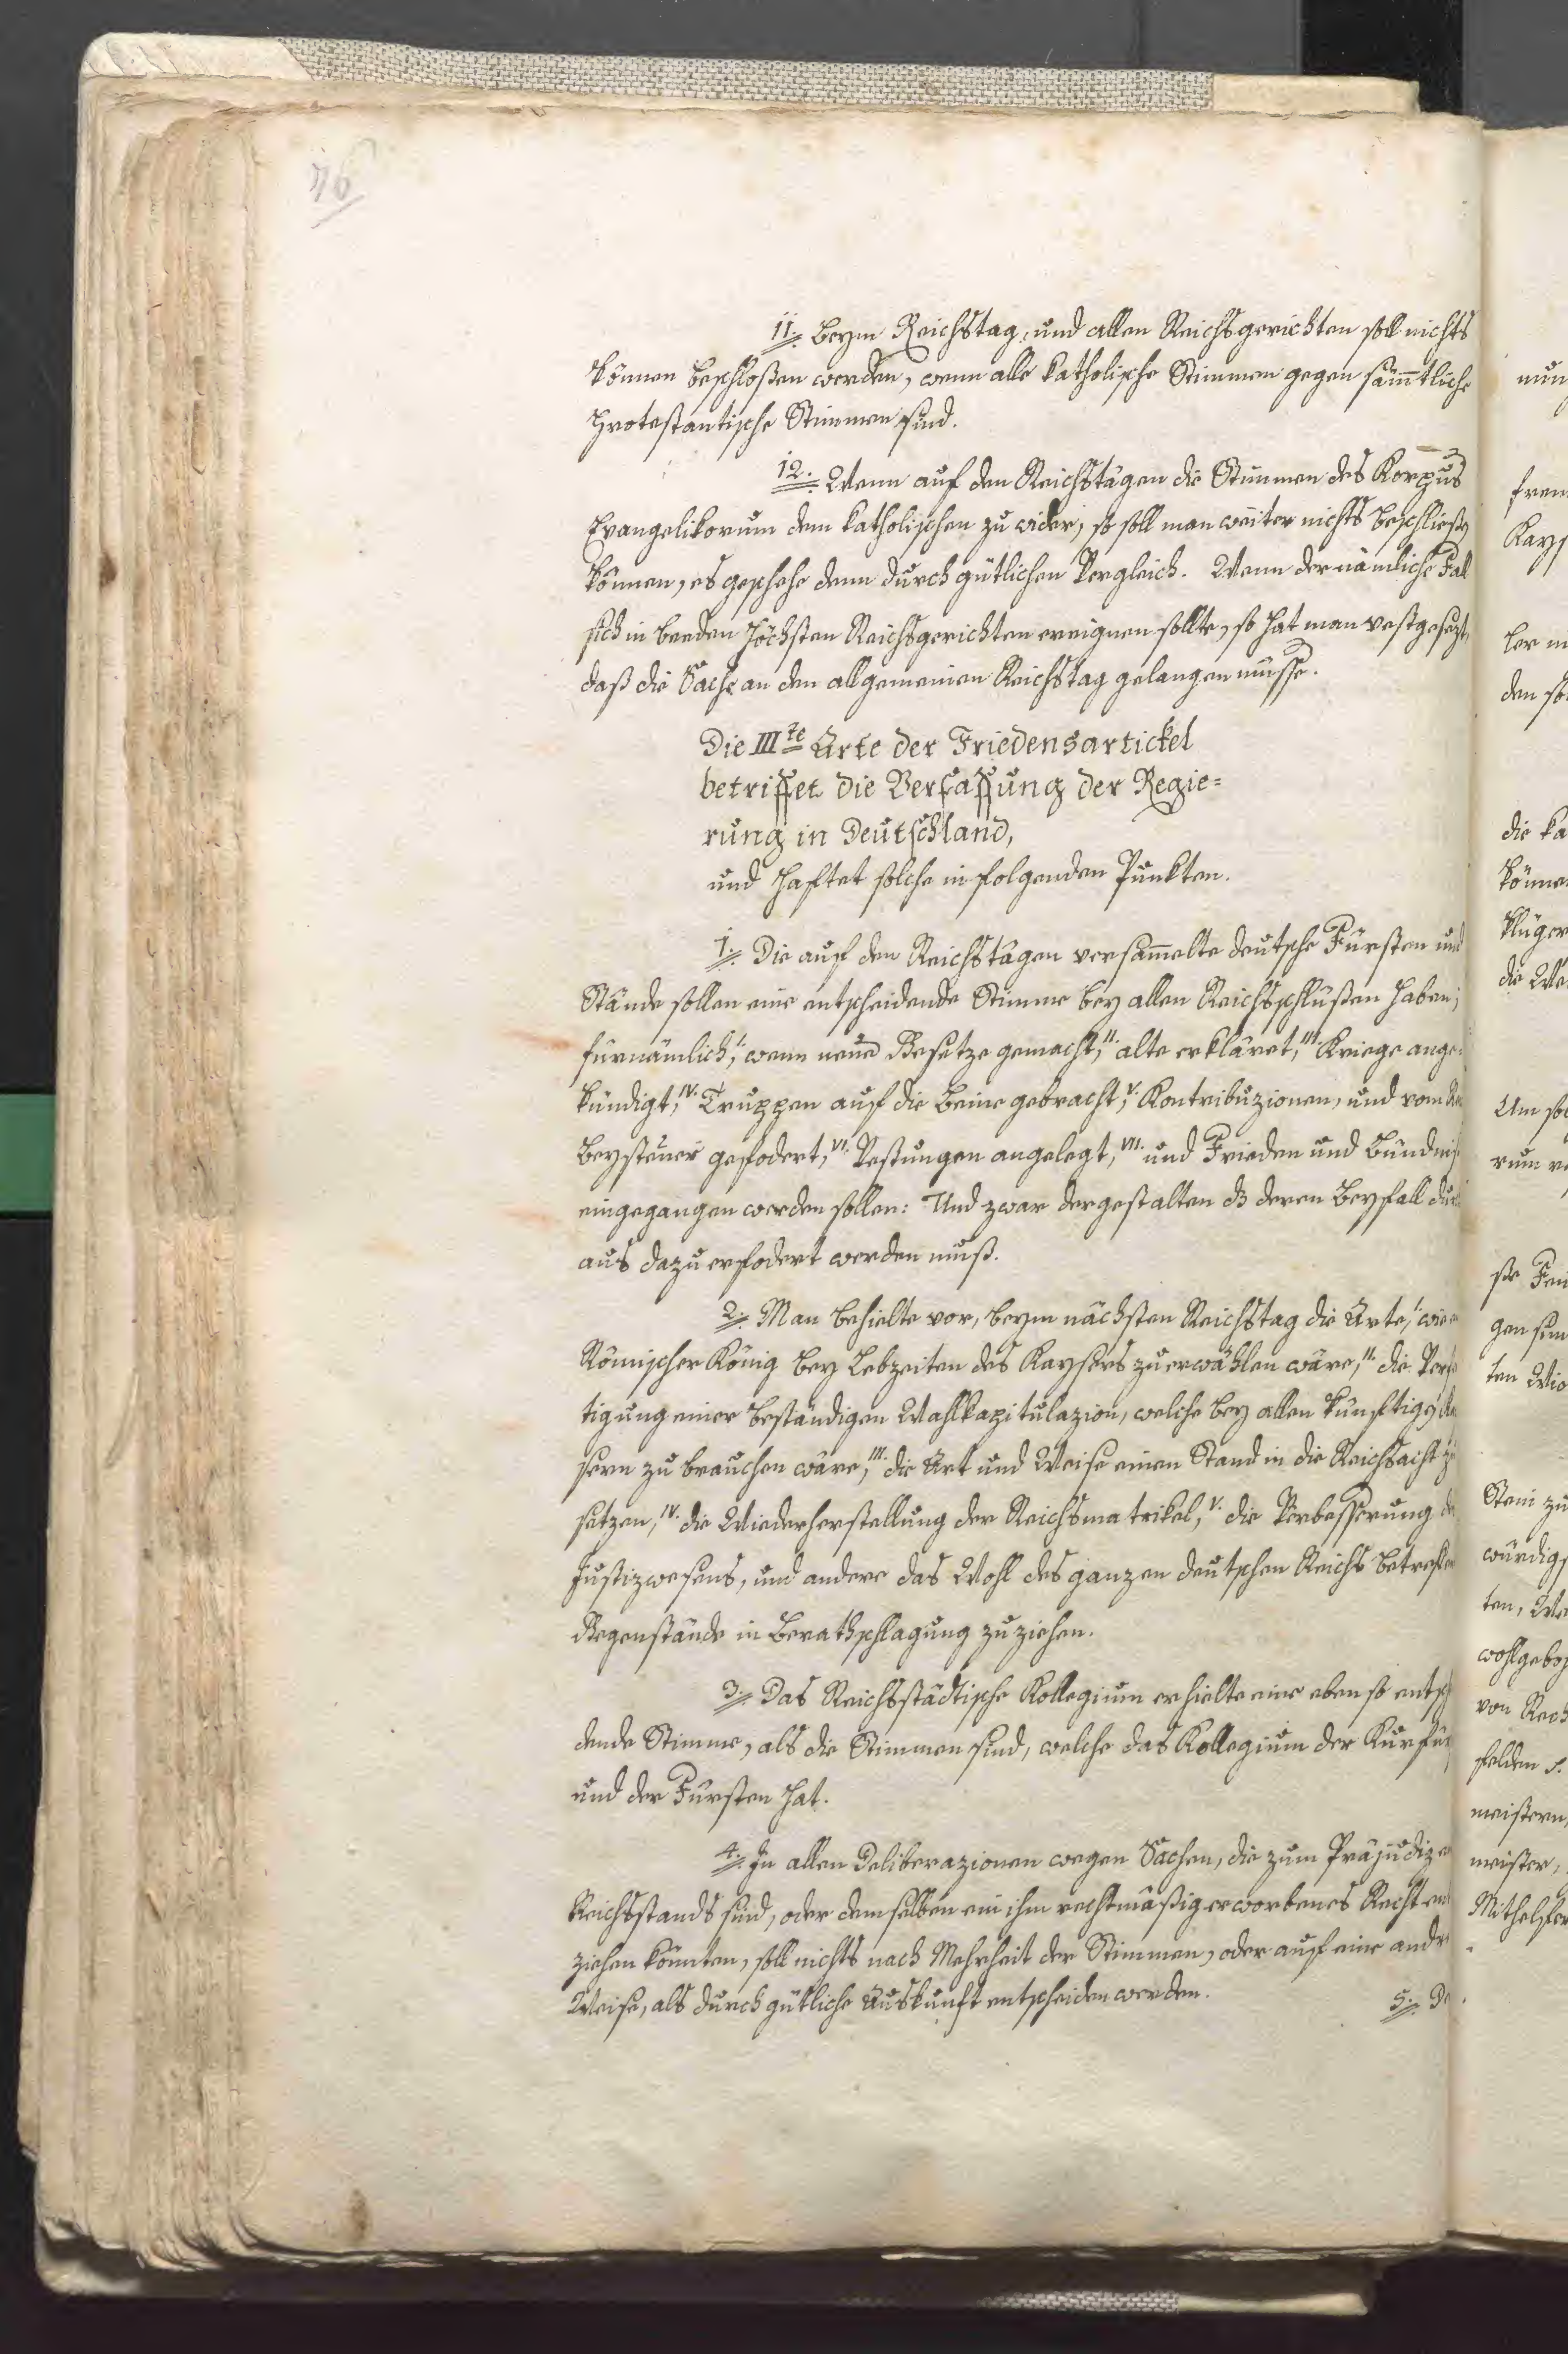 76
11. Beym Reichstag, und allen Reichsgerichten soll nichts
können beschloßen werden, wenn alle katholische Stimmen gegen sämtliche
protestantische Stimmen sind.
12. Wenn auf den Reichstägen die Stimmen des Korpus
Evangelikorum dem katholischen zu wider, so soll man weiter nichts beschließen
können, es geschehe denn durch gütlichen Vergleich. Wenn der nämliche Fall
sich in beeden höchsten Reichsgerichten ereignen sollte, so hat man vestgesezt,
daß die Sache an den allgemeinen Reichstag gelangen müsse.
Die III te Arte der Friedensartickel
betriffet die Verfassung der Regie=
rung in Deutschland,
und haftet solche in folgenden Punkten.
1. Die auf den Reichstägen versammelte deutsche Fürsten und
Stände sollen eine entscheidende Stimme bey allen Reichsschlüßen haben;
fürnämlich, I. wenn neue Gesetze gemacht, II. alte erkläret, III. Kriege ange=
kündigt, IV. Truppen auf die Beine gebracht, V. Kontribuzionen, und vom
Beysteuer gefodert, VI. Vestungen angelegt, VII. und Frieden und Bündniß
eingegangen werden sollen: Und zwar dergestalten dß deren Beyfall dur
aus dazu erfodert werden muß.
2. Man behielte vor, beym nächsten Reichstag die Arte, I. wie
Römischer König bey Lebzeiten des Kaysers zu erwählen wäre, II. die Verfe
tigung einer beständigen Wahlkapitulazion, welche bey allen künftigen
sern zu brauchen wäre, III. die Art und Weise einen Stand in die Reichsacht zu
setzen, IV. die Wiederherstellung der Reichsmatrikel, V. die Verbesserung de
Justizwesens, und andere das Wohl des ganzen deutschen Reichs betreffen
Gegenstände in Berathschlagung zu ziehen.
3. Das Reichsstädtische Kollegium erhielte eine eben so entsch
dende Stimme, als die Stimmen sind, welche das Kollegium der Kurfür
und der Fürsten hat.
4. In allen Deliberazionen wegen Sachen, die zum Präjudiz
Reichsstands sind, oder demselben ein ihm rechtmäßig erworbenes Recht ent
ziehen könnten, soll nichts nach Mehrheit der Stimmen, oder auf eine andre
Weise, als durch gütliche Auskunft entscheiden werden.
5. De
nun
frem
Kays
den so
die ka
können
klüger
die We
Um sol
rum
ste
gen
ten
Stein zu
würdig
ten,
wohlgebo
von Rech
felden
meistern,
meister,
Mithelfer